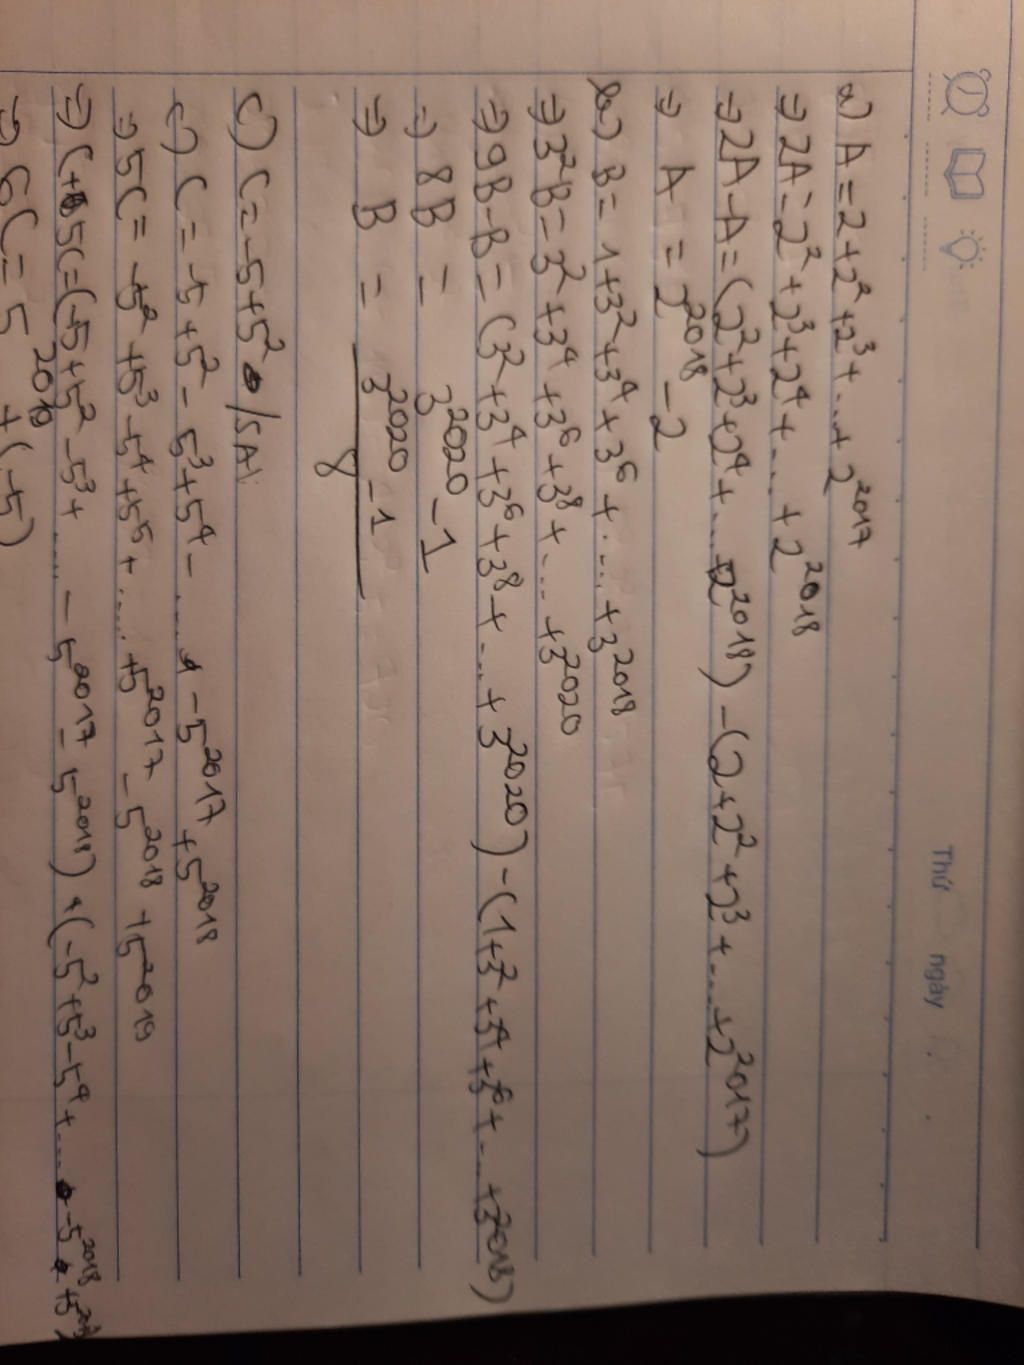 Thứ ngày
a) A = 2 + 2² + 2³ + ... + 2²⁰¹⁷
⇒ 2A = 2² + 2³ + 2⁴ + .... + 2²⁰¹⁸
⇒ 2A - A = (2² + 2³ + 2⁴ + .... + 2²⁰¹⁸) - (2 + 2² + 2³ + .... + 2²⁰¹⁷)
⇒ A = 2²⁰¹⁸ - 2
b) B = 1 + 3² + 3⁴ + 3⁶ + .... + 3²⁰¹⁸
⇒ 3²B = 3² + 3⁴ + 3⁶ + 3⁸ + .... + 3²⁰²⁰
⇒ 9B - B = (3² + 3⁴ + 3⁶ + 3⁸ + .... + 3²⁰²⁰) - (1 + 3² + 3⁴ + 3⁶ + .... + 3²⁰¹⁸)
⇒ 8B = 3²⁰²⁰ - 1
⇒ B = 3²⁰²⁰ - 1
8
C) C = -5 + 5² /SAI
c) C = -5 + 5² - 5³ + 5⁴ - ..... - 5²⁰¹⁷ + 5²⁰¹⁸
⇒ 5C = -5² + 5³ - 5⁴ + 5⁵ + ..... + 5²⁰¹⁷ - 5²⁰¹⁸ + 5²⁰¹⁹
⇒ C + 5C = (-5 + 5² - 5³ + ..... - 5²⁰¹⁷ - 5²⁰¹⁸) + (-5² + 5³ - 5⁴ + .... - 5²⁰¹⁸ + 5²⁰¹⁹)
⇒ 6C = 5²⁰¹⁹ + (-5)